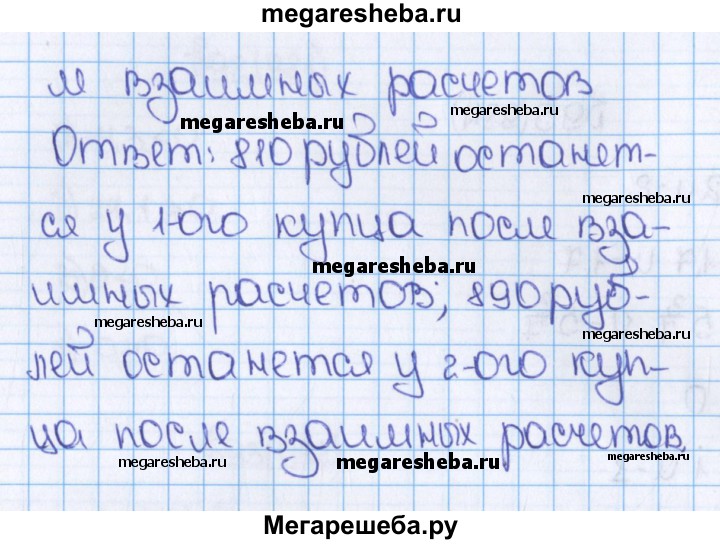 megaresheba.ru
м взаимных расчетов
megaresheba.ru
megaresheba.ru
Ответ: 810 рублей останет-
megaresheba.ru
ся у 1-ого купца после вза-
megaresheba.ru
имных расчетов; 890 руб-
megaresheba.ru
megaresheba.ru
лей останется у 2-ого куп-
ца после взаимных расчетов.
megaresheba.ru
megaresheba.ru
megaresheba.ru
Мегарешеба.ру